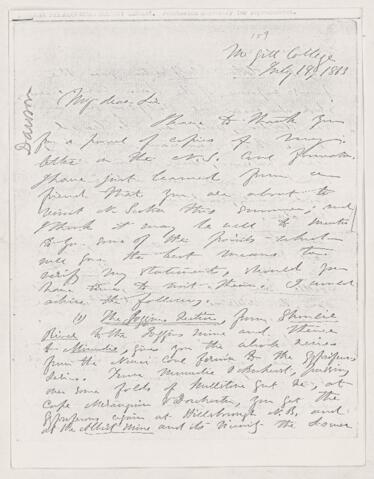 McGill College
July 19 1883
Dawson
My dear Sir
I have to thank you
for a parcel of copies of my
letter on the N.S. Coal
I have just learned from a
friend that you are about to
visit N. Scotia this summer, and
I think it may be well to mention
to you some of the points which
will give the best means to
verify my statements, should you
have time to visit them. I would
advise the following.
(1) The Joggins Section, from Shoulie
River to the Joggins mine and thence
to Minudie, gives you the whole series
from the Coal to the Gypsiferous
series. From Minudie
over some folds of Millstone Grit &c, at
Cape Maranguin & Dorchester, you get the
Gypsiferous again at Hillsborough N.B. and
at the Albert Mine and its vicinity the lower